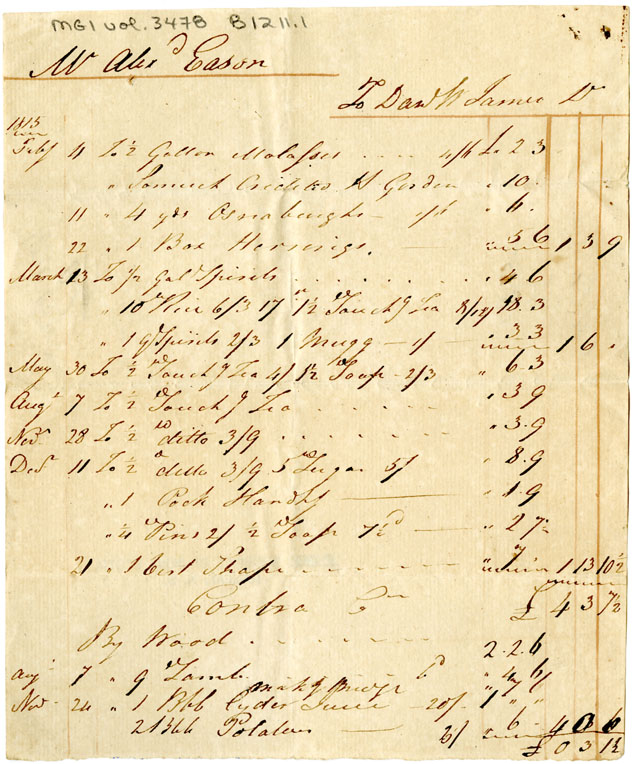 MG1 vol. 3478 B1211.1
Mr Alexd Eason
To Dan W James Dr
1813
Feby 4 To ½ Gallon Molasses .... 4/6 £ " 2 3
" Samuel Creelman Gordon " 10 "
11 " 4 yds Osnaburghs - 1/6 " 6 "
22 " 1 Box Herrings. — 3 6 1 3 9
March 13 To ½ Gal Spirits ........ " 4 6
" 10 Rice 6/3 17 1½ Souchg Tea 8/ 18.3
" 1 qt Spirits 2/3 1 Mugg — 1/ — " 3 3 1 6 "
May 30 To ½ Souchg Tea 4/ 1½ Soap - 2/3 " 6.3
Augt 7 To ½ Souchg Tea ...... " 3 9
Novr 28 To ½ ditto 3/9 ...... " 3.9
Decr 11 To ½ ditto 3/9 5 Sugar 5/ " 8.9
" 1 Pock Handkf — " 1.9
" ¼ Pins 2/ ½ Soap 7½d — " 2 7½
21 " 1 best 1 13 10½
Contra Cr £ 4 3 7½
By Wood ........ 2.2.6
Augt 7 " 9 Lamb 6d " 4 6
Novr 24 " 1 Bbb Cyder 20/. 1 " "
2 Bbb Potatoes — 3/ " 6 " 4 0 6
£ 0 3 1½